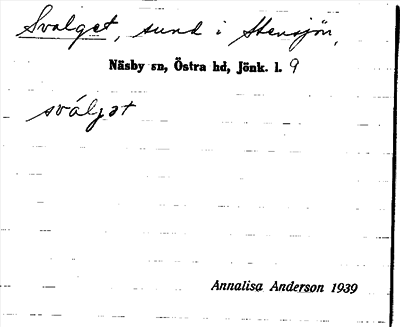 Svalget, sund i Stensjön,
Näsby sn, Östra hd, Jönk. l. 9
sváljet
Annalisa Anderson 1939